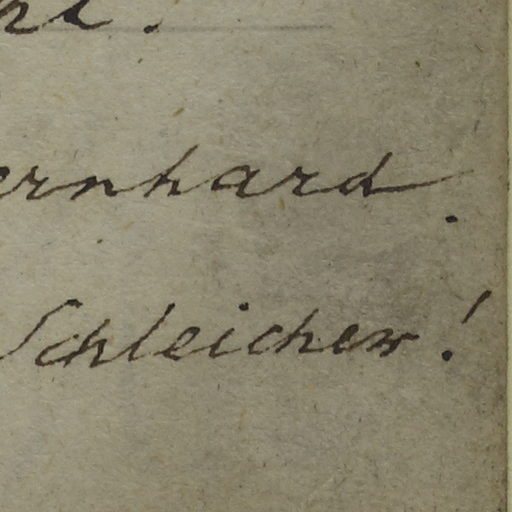 ernhard.
Schleicher!